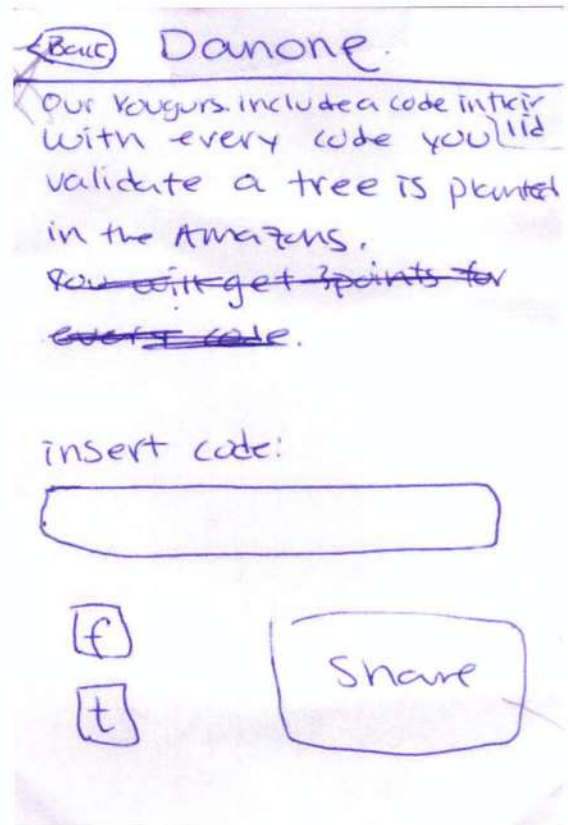 Back Danone.
Our Yougurs include a code in their lid
With every code you
validate a tree is planted
in the Amazons.
You will get 3points for
every code.
insert code:
f
Share
t